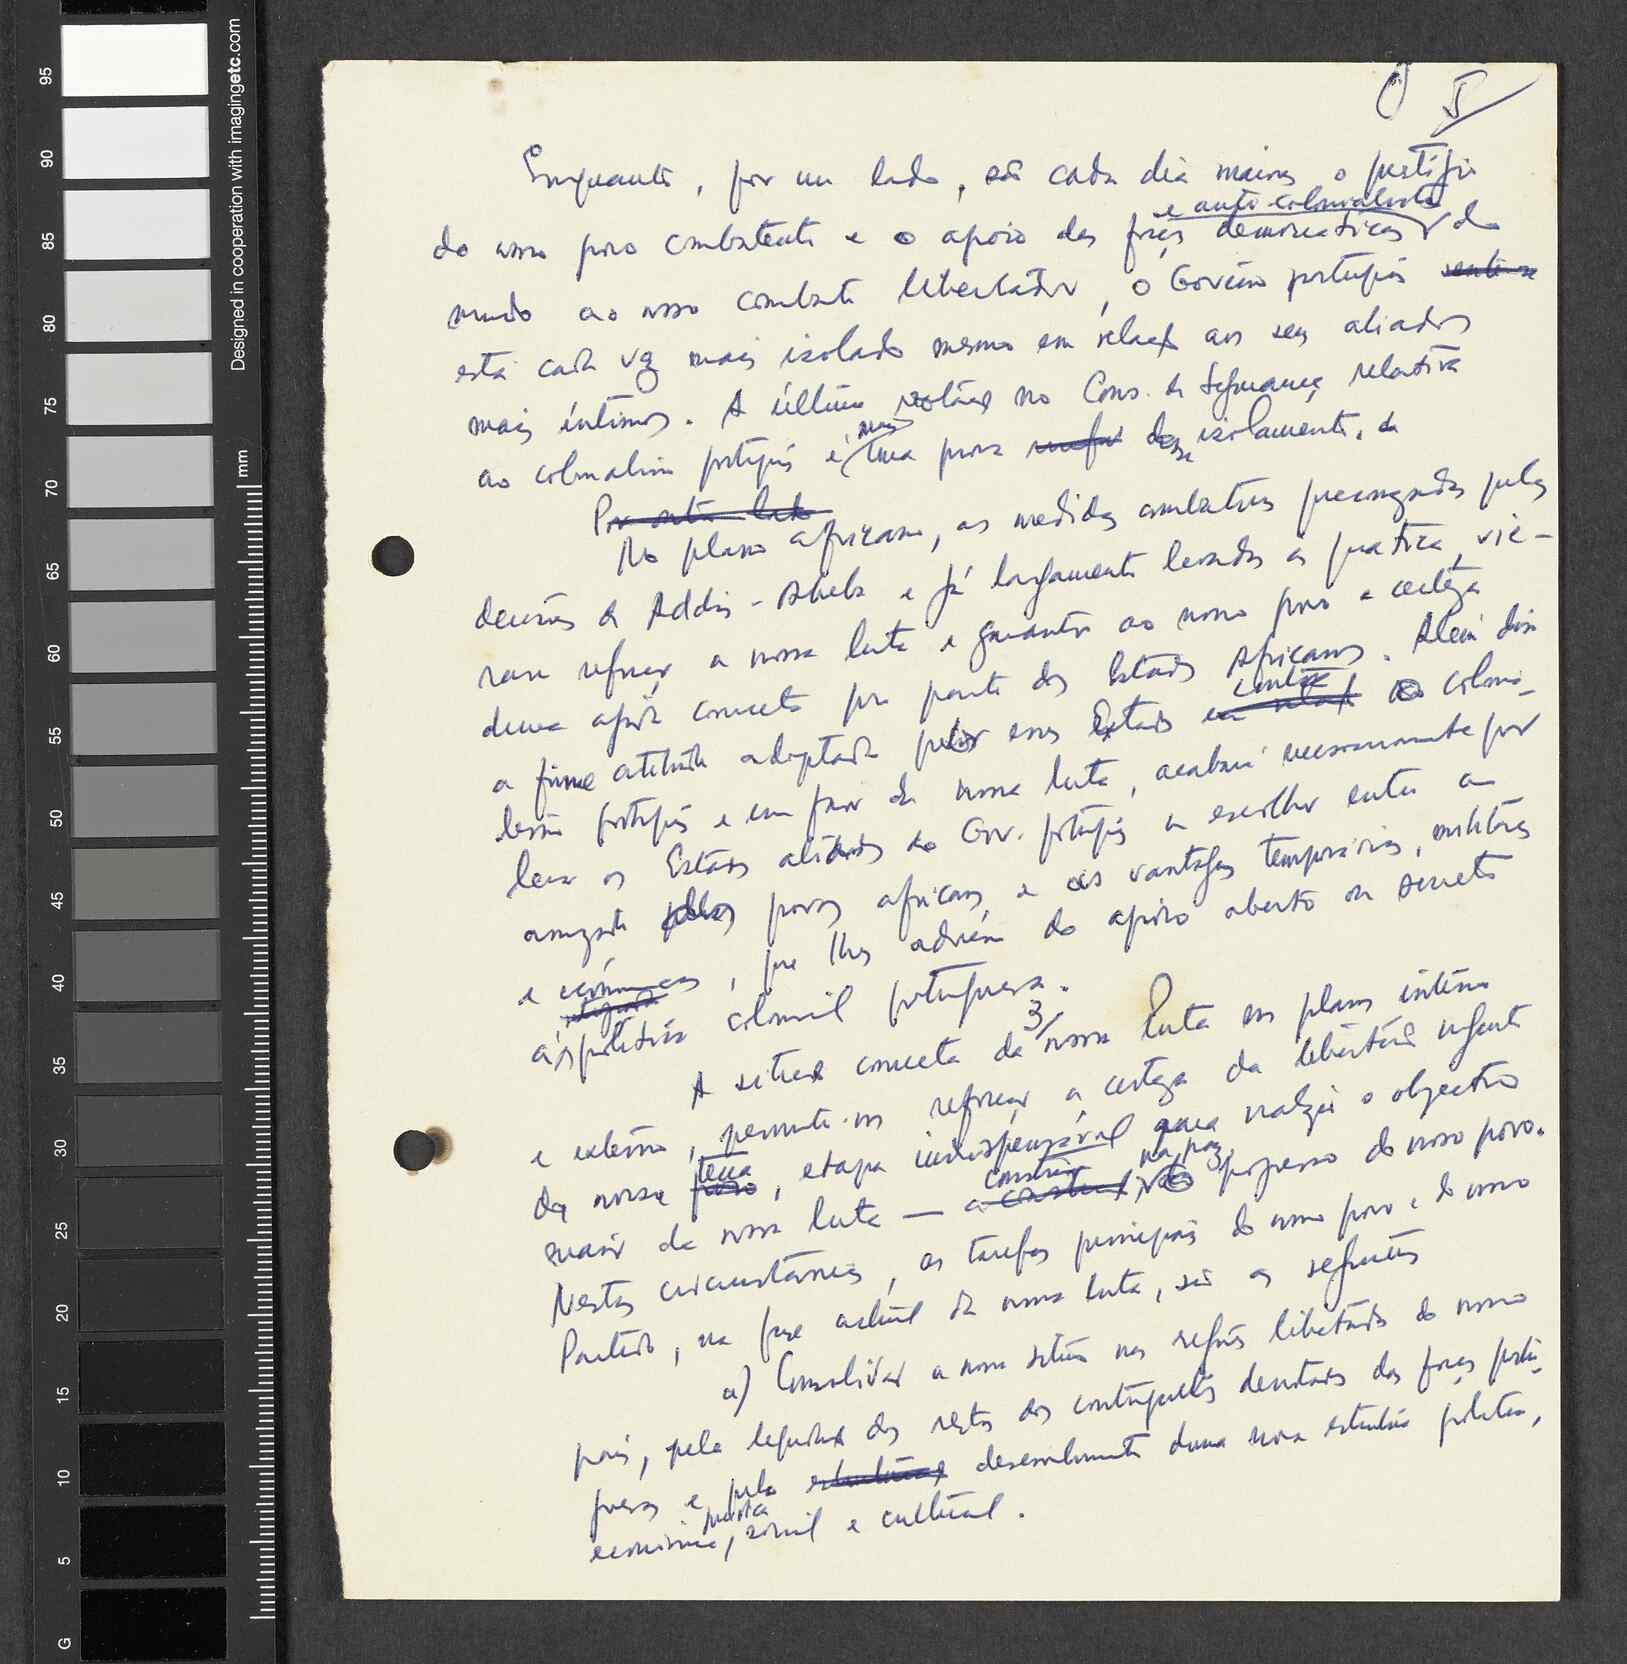 5
Enquanto, por um lado, são cada dia maiores o prestígio
e anti-colonialistas
do nosso povo combatente e o apoio das forças democráticas do
mundo ao nosso combate libertador, o Govêrno português
está cada vez mais isolado mesmo em relação aos seus aliados
mais íntimos. A última votação no Cons. de Segurança, relativa
ao colonialismo português é mais uma prova desse isolamento.
Por outro lado
No plano africano, as medidas combativas preconizadas pelas
decisões de Addis-Abeba e já largamente levadas à prática, vie-
ram reforçar a nossa luta e garantir ao nosso povo a certeza
duma ajuda concreta por parte dos Estados Africanos. Além disso
a firme atitude adoptada por esses Estados contra o colonia-
lismo português e em favor da nossa luta, acabará necessariamente por
levar os Estados aliados do Gov. português a escolher entre a
amizade pelos povos africanos e as vantagens temporárias, militares
e económicas, que lhes advêm do apoio aberto ou secreto
à política colonial portuguesa.
3/
A situação concreta da nossa luta nos planos interno
e externo, permite-nos reforçar a certeza da libertação urgente
da nossa terra, etapa indispensável para realizar o objectivo
maior da nossa luta — construir, na paz, o progresso do nosso povo.
Nestas circunstâncias, as tarefas principais do nosso povo e do nosso
Partido, na fase actual da nossa luta, são as seguintes
a) Consolidar a nossa situação nas regiões libertadas do nosso
país, pela liquidação dos restos dos contingentes derrotados das forças portu-
guesas e pelo desenvolvimento duma nova estrutura política,
económica, social e cultural.
Designed in cooperation with imagingetc.com
mm
95
90
85
80
75
70
65
60
55
50
45
40
35
30
25
20
15
10
5
G